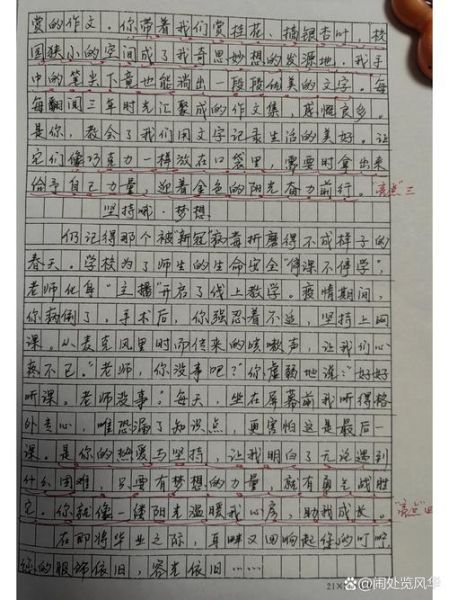 赏的作文。你带着我们赏桂花、摘银杏叶，校
园狭小的空间成了我奇思妙想的发源地，我手
中的笔尖下竟也能淌出一段段优美的文字。每
每翻阅三年时光汇聚成的作文集，感慨良多。
是你，教会了我们用文字记录生活的美好。让
它们像巧克力一样放在口袋里，需要时拿出来
给予自己力量，迎着金色的阳光奋力前行。
"亮点"三
坚持哦·梦想
仍记得那个被"新冠"病毒折磨得不成样子的
春天。学校为了师生的生命安全"停课不停学"，
老师化身"主播"开启了线上教学。疫情期间，
你病倒了，手术后，你强忍着不适，坚持上网
课。从麦克风里时而传来的咳嗽声，让我们心
疼不已。"老师，你没事吧？"你虚弱地说："好好
听课。老师没事。"每天，坐在屏幕前我听得格
外专心，唯恐漏了知识点，更害怕这是最后一
课。是你的热爱与坚持，让我明白了无论遇到
什么困难，只要有梦想的力量，就有勇气战胜
它。你就像一缕阳光温暖我心房，助我成长。
"亮点"四
在即将毕业之际，耳畔又回响起您的叮咛，
您的服饰依旧，容光依旧……
21×
@闹处览风华